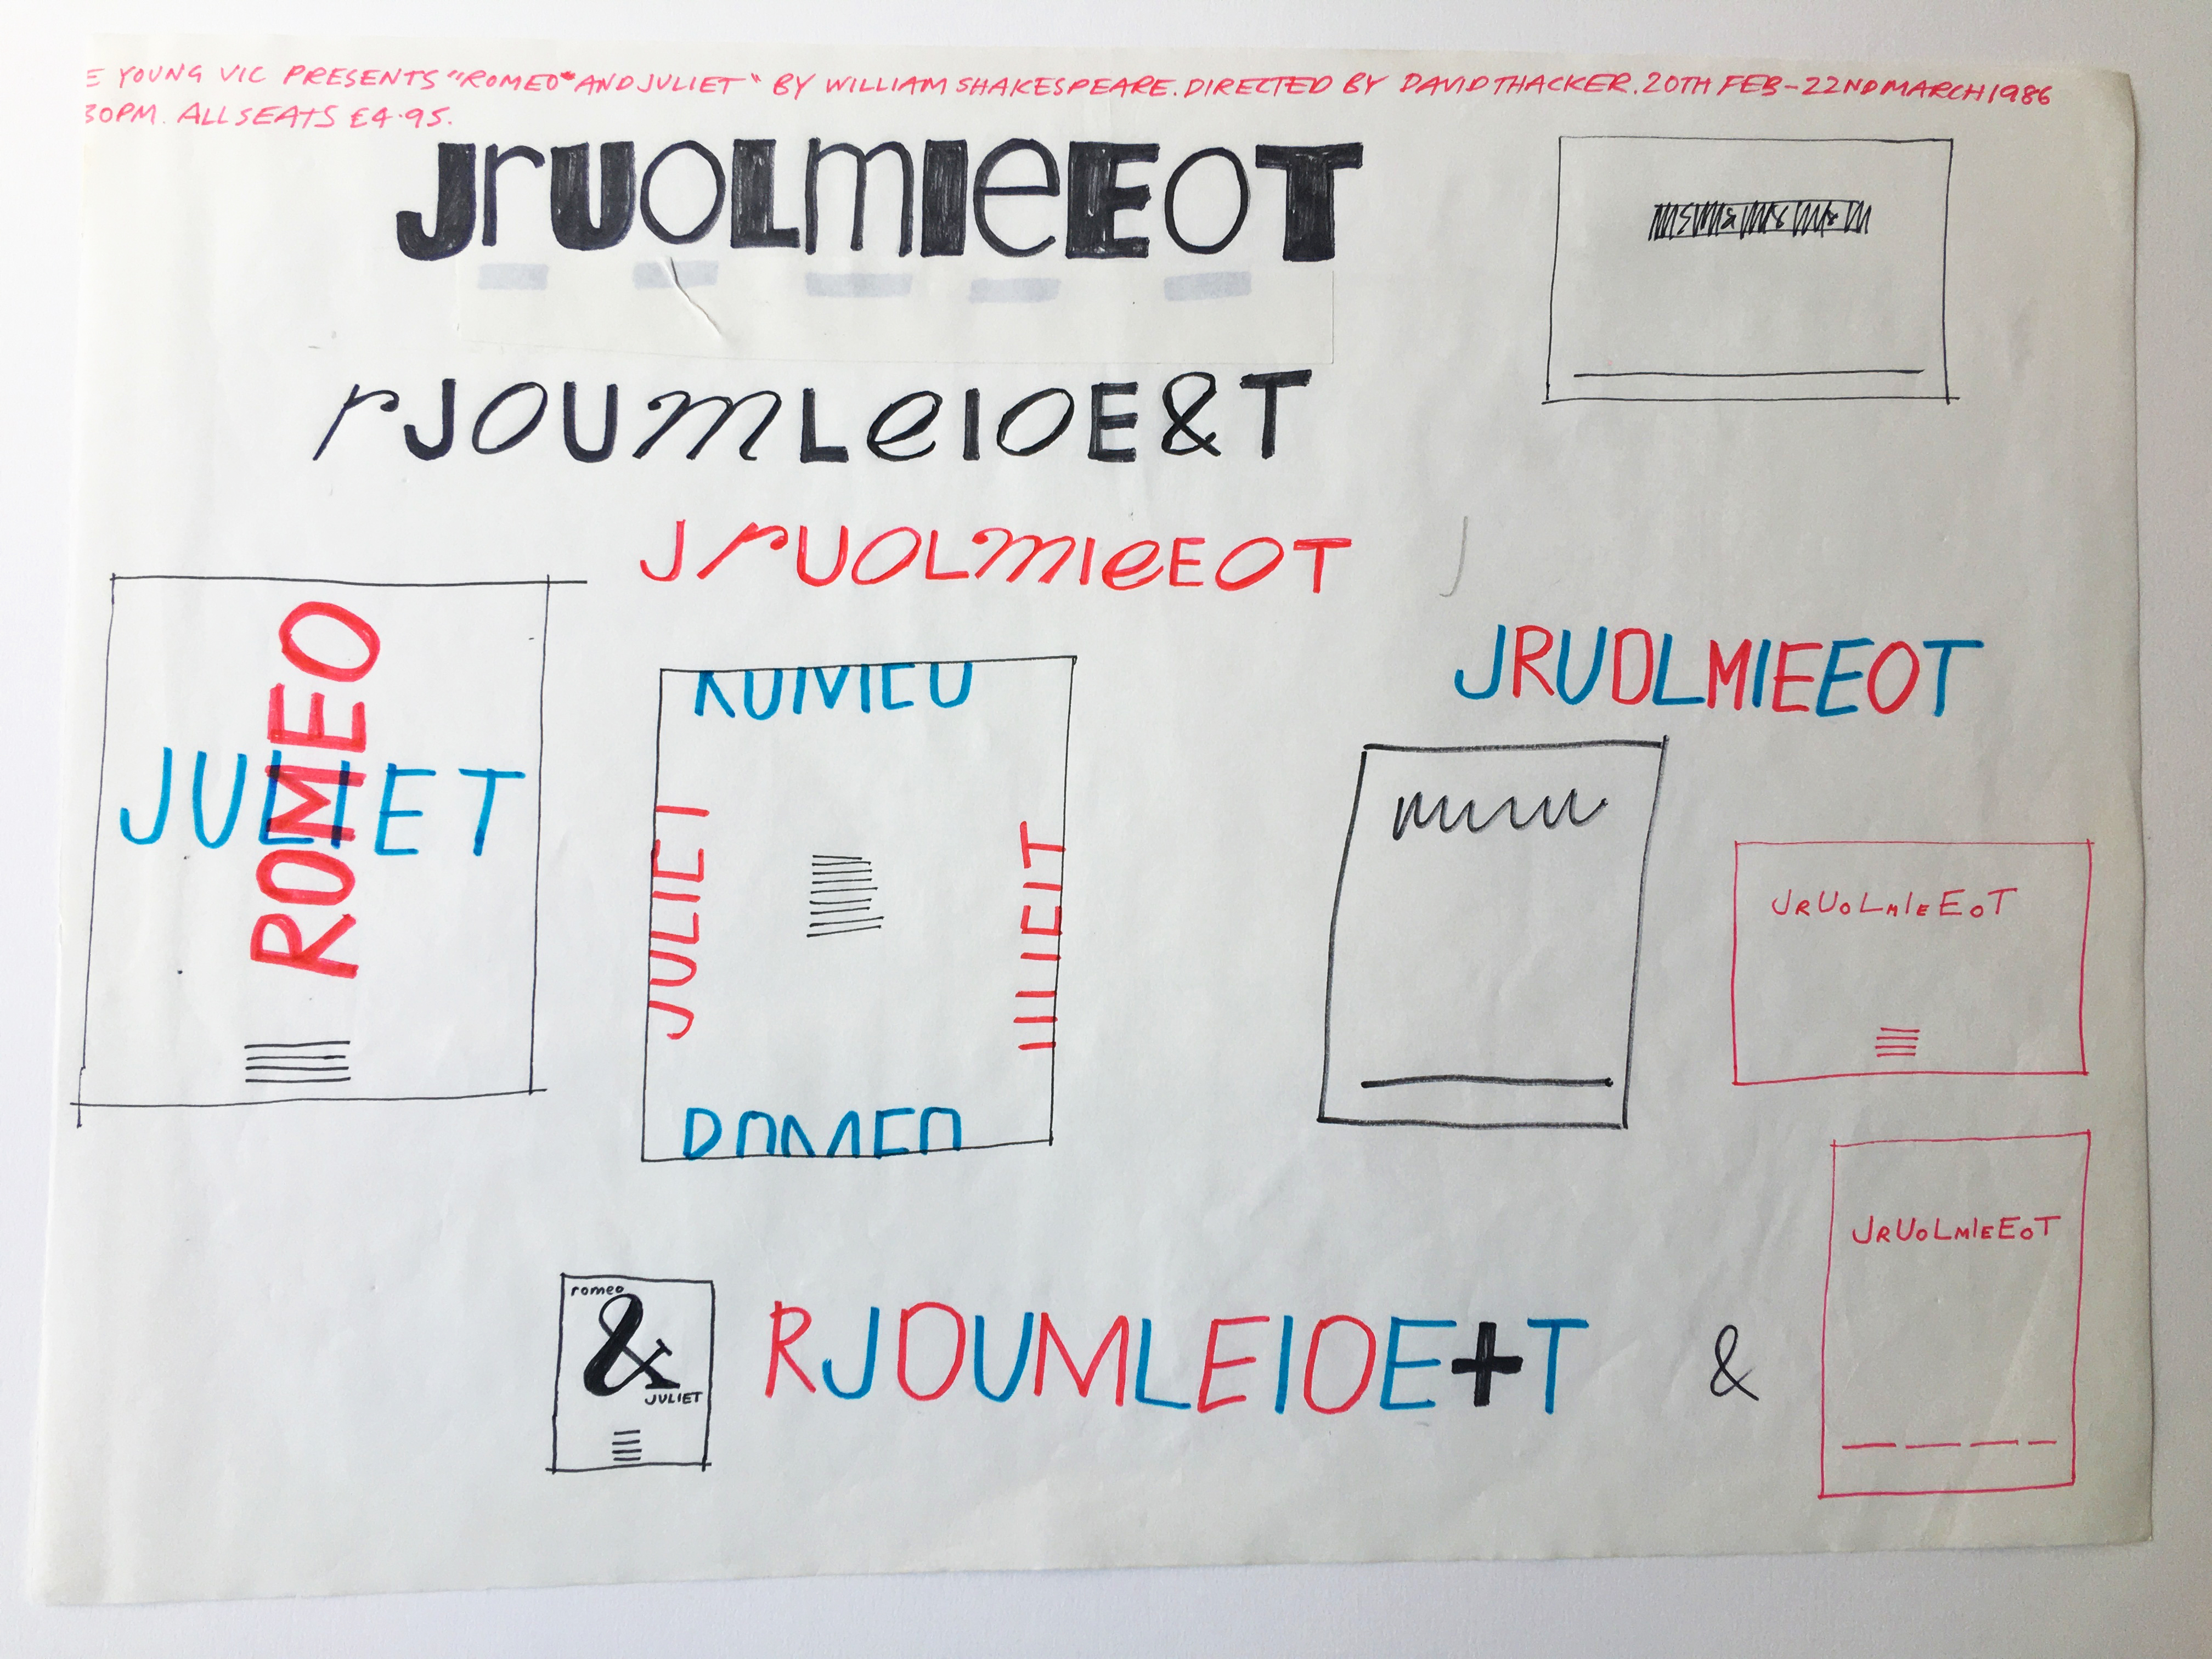 E YOUNG VIC PRESENTS "ROMEO" AND JULIET" BY WILLIAM SHAKESPEARE. DIRECTED BY DAVID THACKER. 20TH FEB-22ND MARCH 1986
30PM. ALL SEATS £4.95.
JrUoLmIeEoT
rJoUmLeIoE&T
JrUoLmIeEoT
J
JRUOLMIEEOT
ROMEO
JULIET
ROMEO
JULIET
JULIET
ROMEO
JRUOLMIEEOT
JRUOLMIEEOT
romeo
&
JULIET
RJOUMLEIOE+T
&